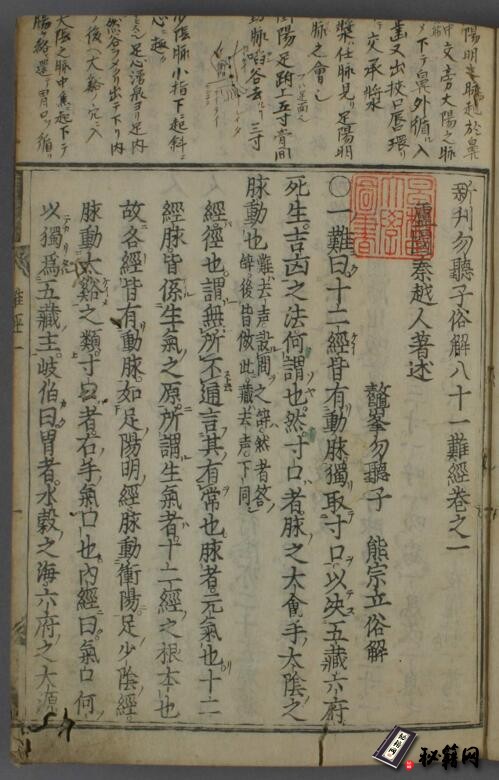 陽明之脉起於鼻
交旁太陽之脉
下テ鼻外循ル入
歯又出挾口唇環リ
交承漿
漿ハ任脉見リ足陽明
脉之會也
衝陽足趺上五寸骨間
動脉陷谷去三寸
少陰脉小指下ニ起斜ニ
心ニ趣リ
足心湧泉ヨリ足内
然谷ヲメクリ出テ下リ内
後ヘ大谿ノ穴ニ入
大陰之脉中焦起下テ
腸ヲ絡ヒ還テ胃口ヲ循リ
新刊勿聽子俗解八十一難經卷之一
盧國秦越人著述
鼇峯勿聽子 熊宗立俗解
〇一難曰十二經皆有動脉獨取寸口以决五藏六府
死生吉凶之法何謂也然寸口者脉之大會手太陰之
脉動也難去声設問之辞然者答
辞後皆倣此藏去声下同
經徑也謂無所不通言其有常也脉者元氣也十二
經脉皆係生氣之原所謂生氣者十二經之根本也
故各經皆有動脉如足陽明經脉動衝陽足少陰經
脉動太谿之類寸口者右手氣口也内經曰氣口何
以獨爲五藏主岐伯曰胃者水穀之海六府之大源
難經一
秘籍网